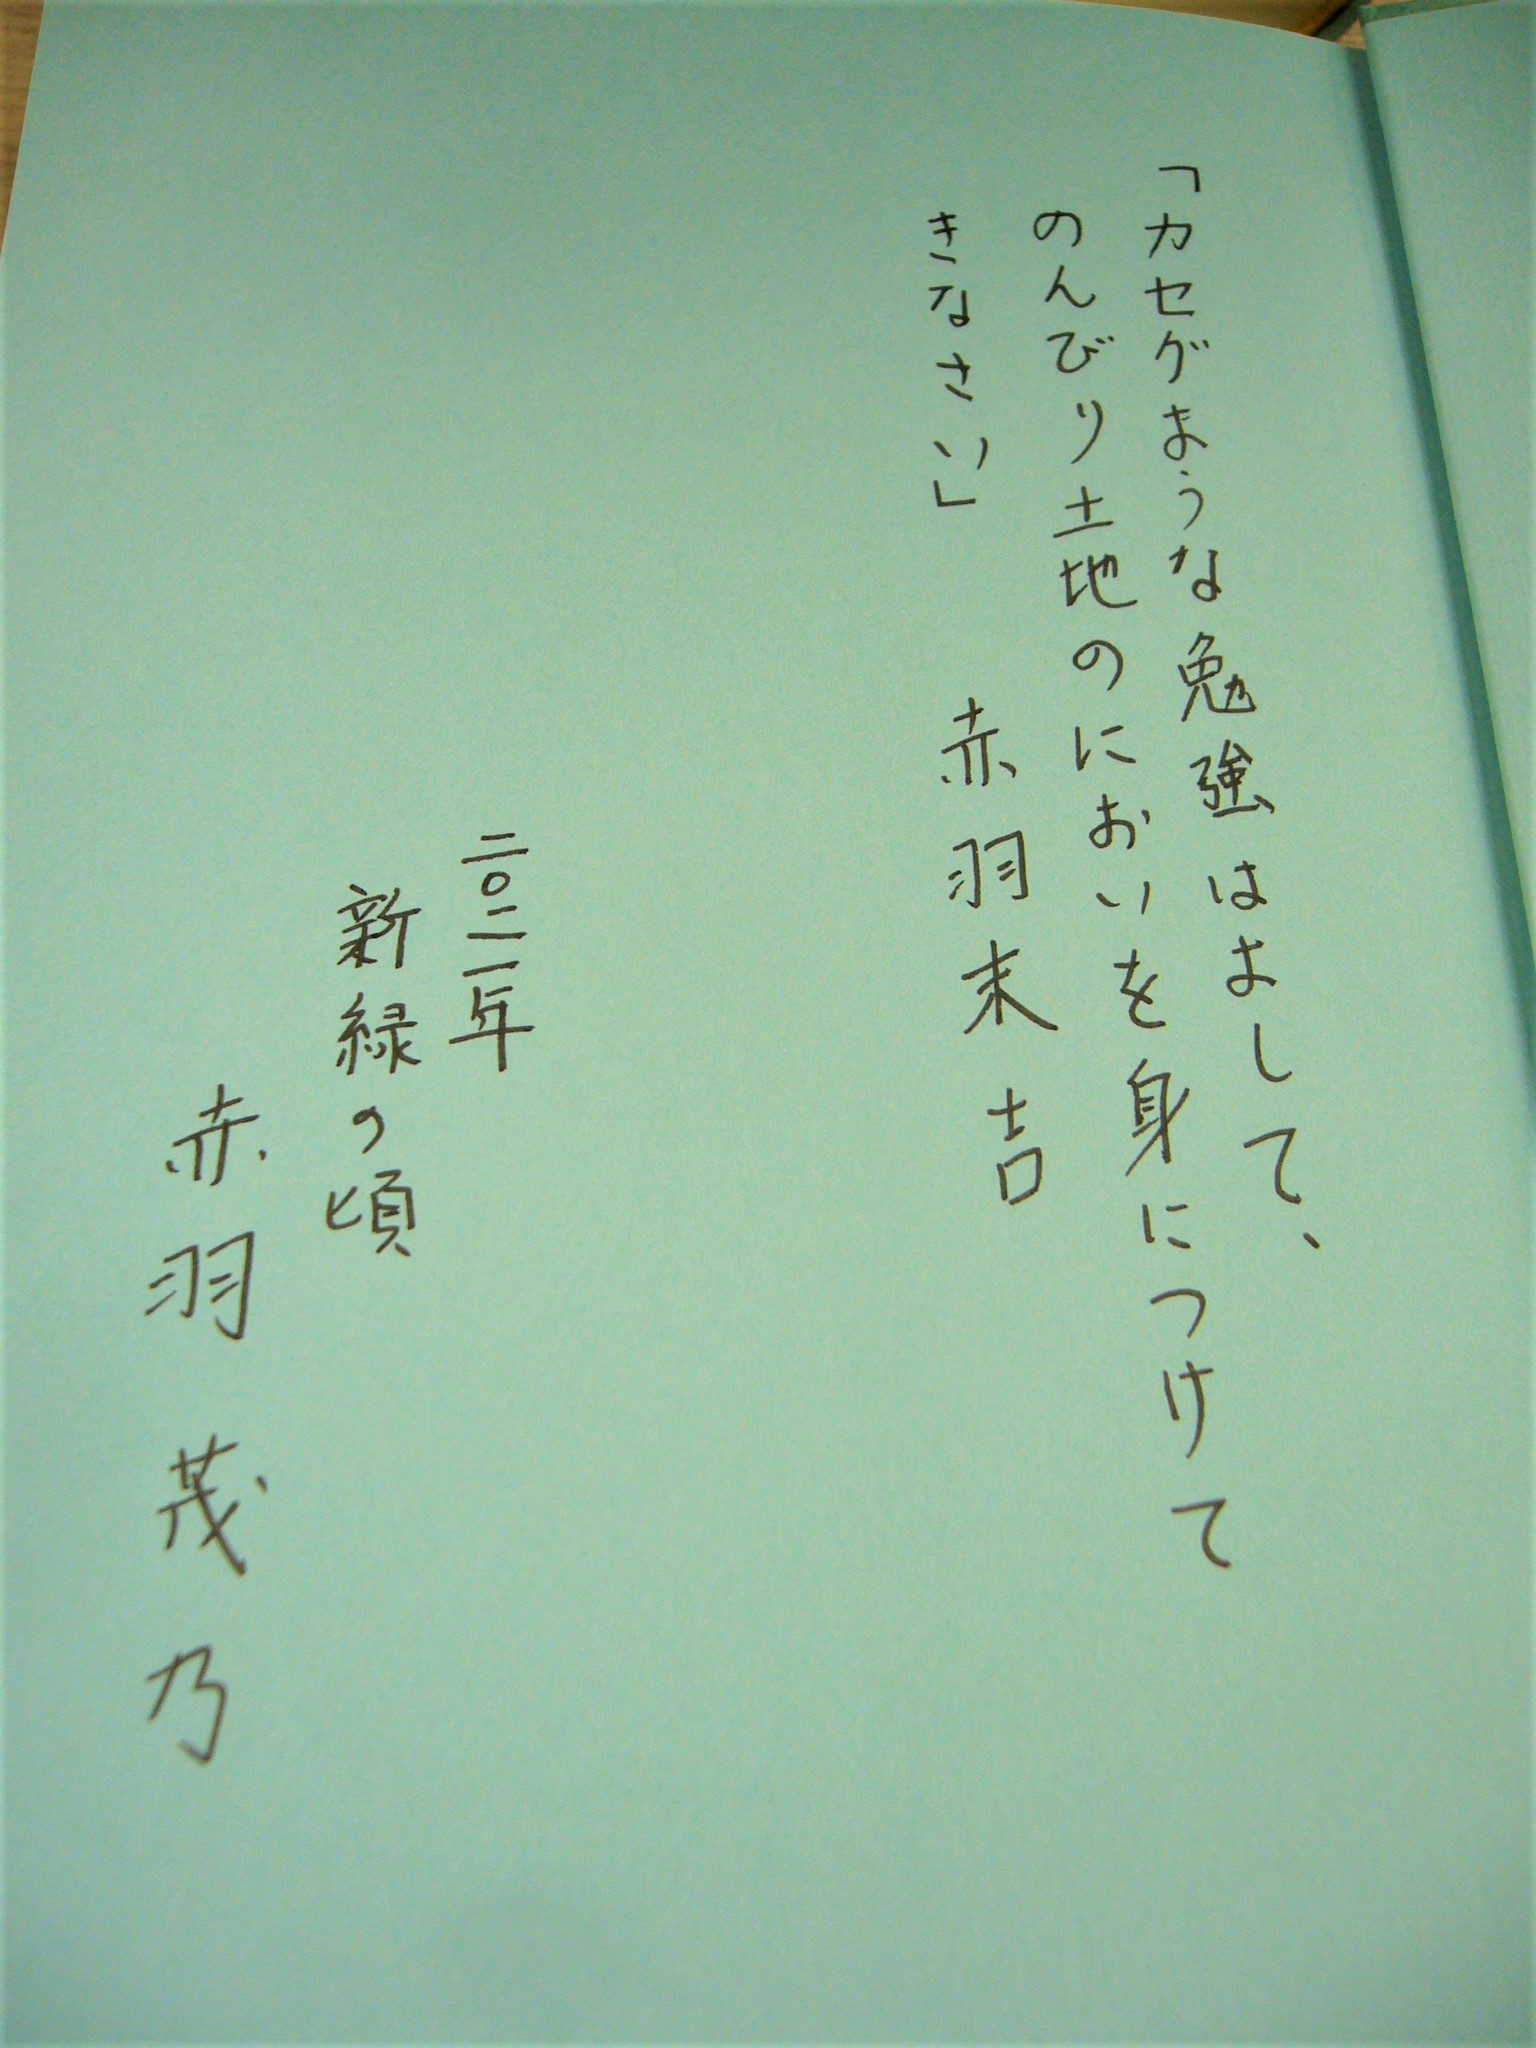 「カセグような勉強はよして、
のんびり土地のにおいを身につけて
きなさい」 赤羽末吉
二〇二一年
新緑の頃
赤羽茂乃